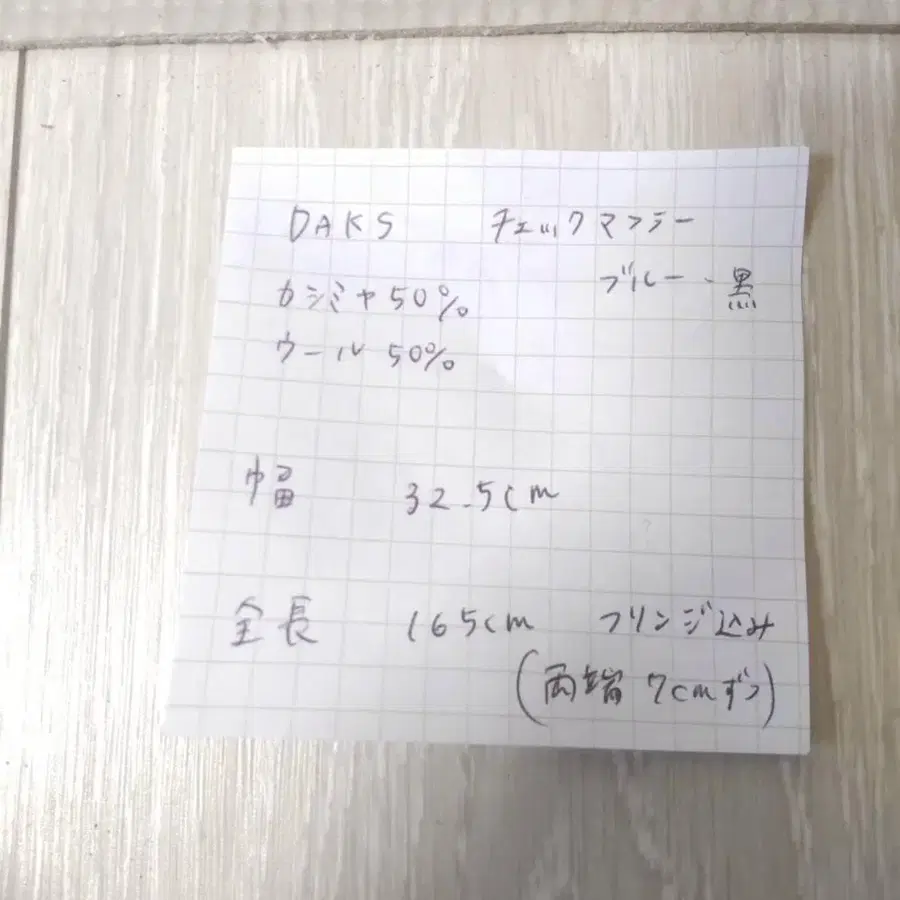 DAKS チェックマフラー
ブルー・黒
カシミヤ50%
ウール50%
幅 32.5cm
全長 165cm フリンジ込み
(両端 7cmずつ)